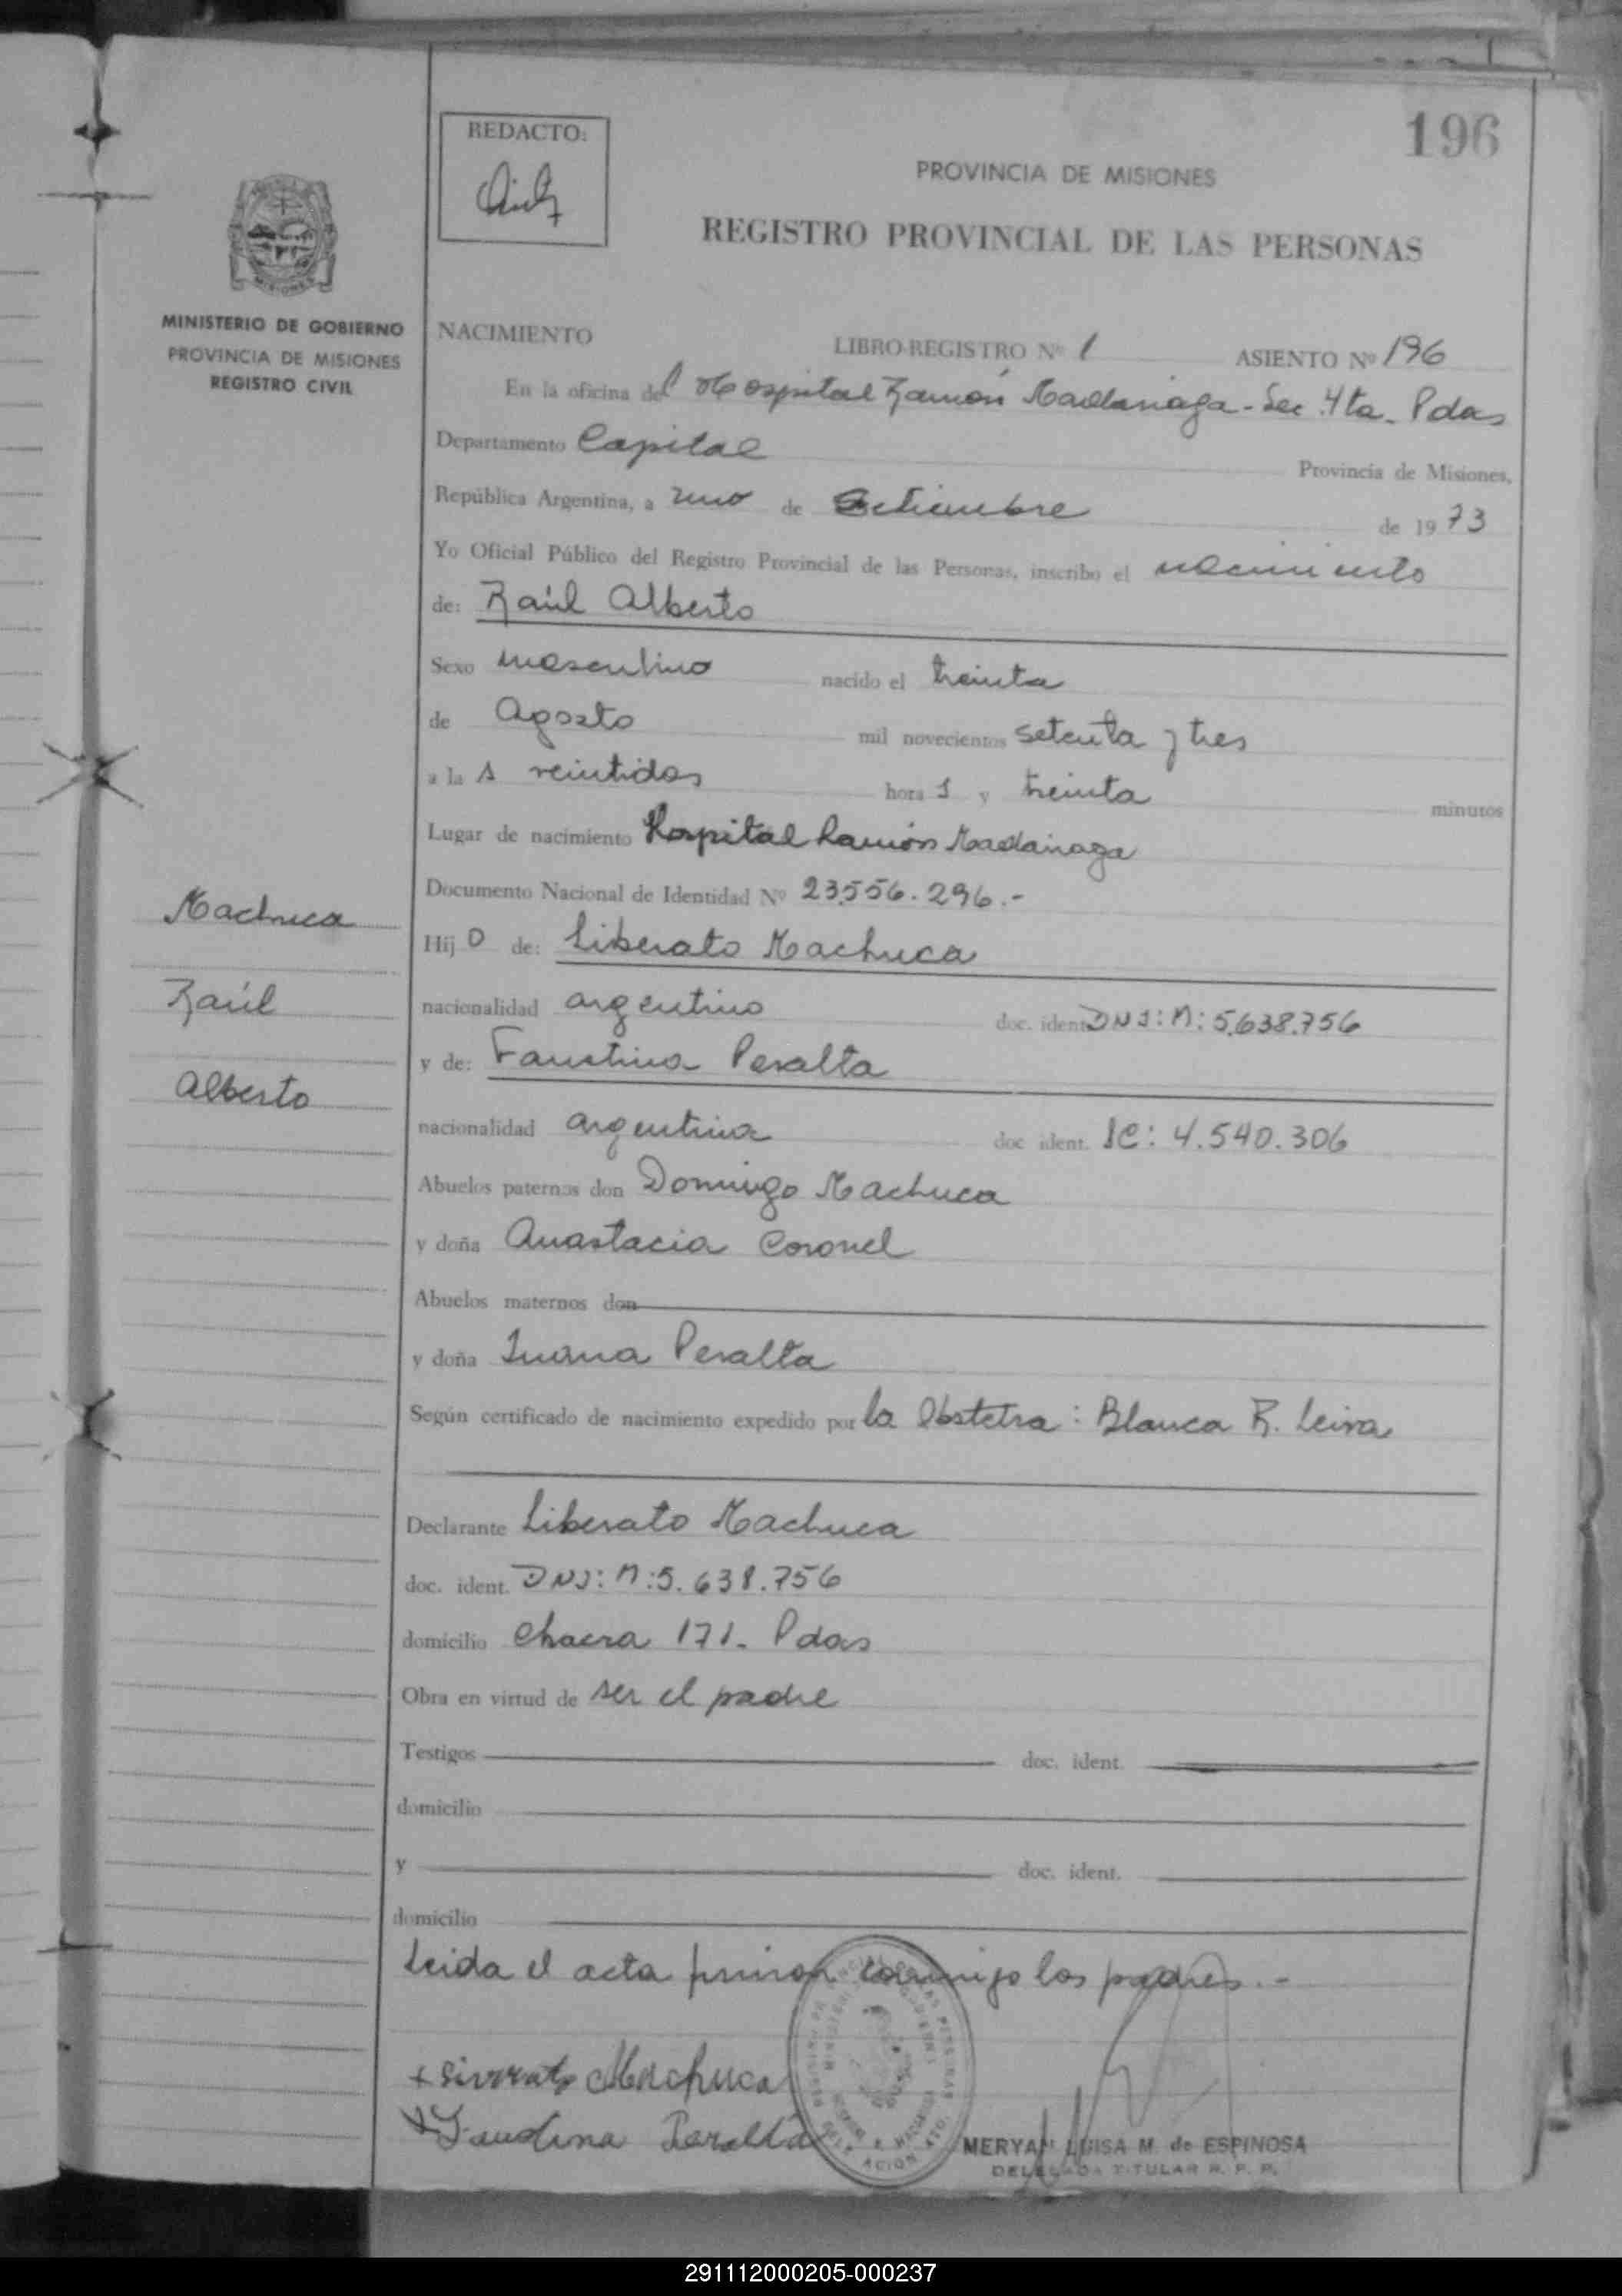 196
REDACTO:
PROVINCIA DE MISIONES
REGISTRO PROVINCIAL DE LAS PERSONAS
MISIONES
MINISTERIO DE GOBIERNO
PROVINCIA DE MISIONES
REGISTRO CIVIL
NACIMIENTO
LIBRO-REGISTRO Nº 1 ASIENTO Nº 196
En la oficina del Hospital Ramón Madariaga - Sec 4ta. Pdas
Departamento Capital Provincia de Misiones,
República Argentina, a uno de Setiembre de 1973
Yo Oficial Público del Registro Provincial de las Personas, inscribo el nacimiento
de: Raúl Alberto
Sexo masculino nacido el treinta
de Agosto mil novecientos setenta y tres
a la s veintidos hora s y treinta minutos
Lugar de nacimiento Hospital Ramón Madariaga
Documento Nacional de Identidad Nº 23.556.296.-
Machuca
Raúl
Alberto
Hij o de: Liberato Machuca
nacionalidad argentino doc. ident. DNI: M: 5.638.756
y de: Faustina Peralta
nacionalidad argentina doc. ident. LC: 4.540.306
Abuelos paternos don Domingo Machuca
y doña Anastacia Coronel
Abuelos maternos don
y doña Juana Peralta
Según certificado de nacimiento expedido por la Obstetra: Blanca R. Leiva
Declarante Liberato Machuca
doc. ident. DNI: M: 5.638.756
domicilio Chacra 171. Pdas
Obra en virtud de ser el padre
Testigos doc. ident.
domicilio
y doc. ident.
domicilio
Leida el acta firman conmigo los padres.-
Machuca
Peralta
MERYAN LUISA M. de ESPINOSA
DELEGADA TITULAR R. P. P.
291112000205-000237